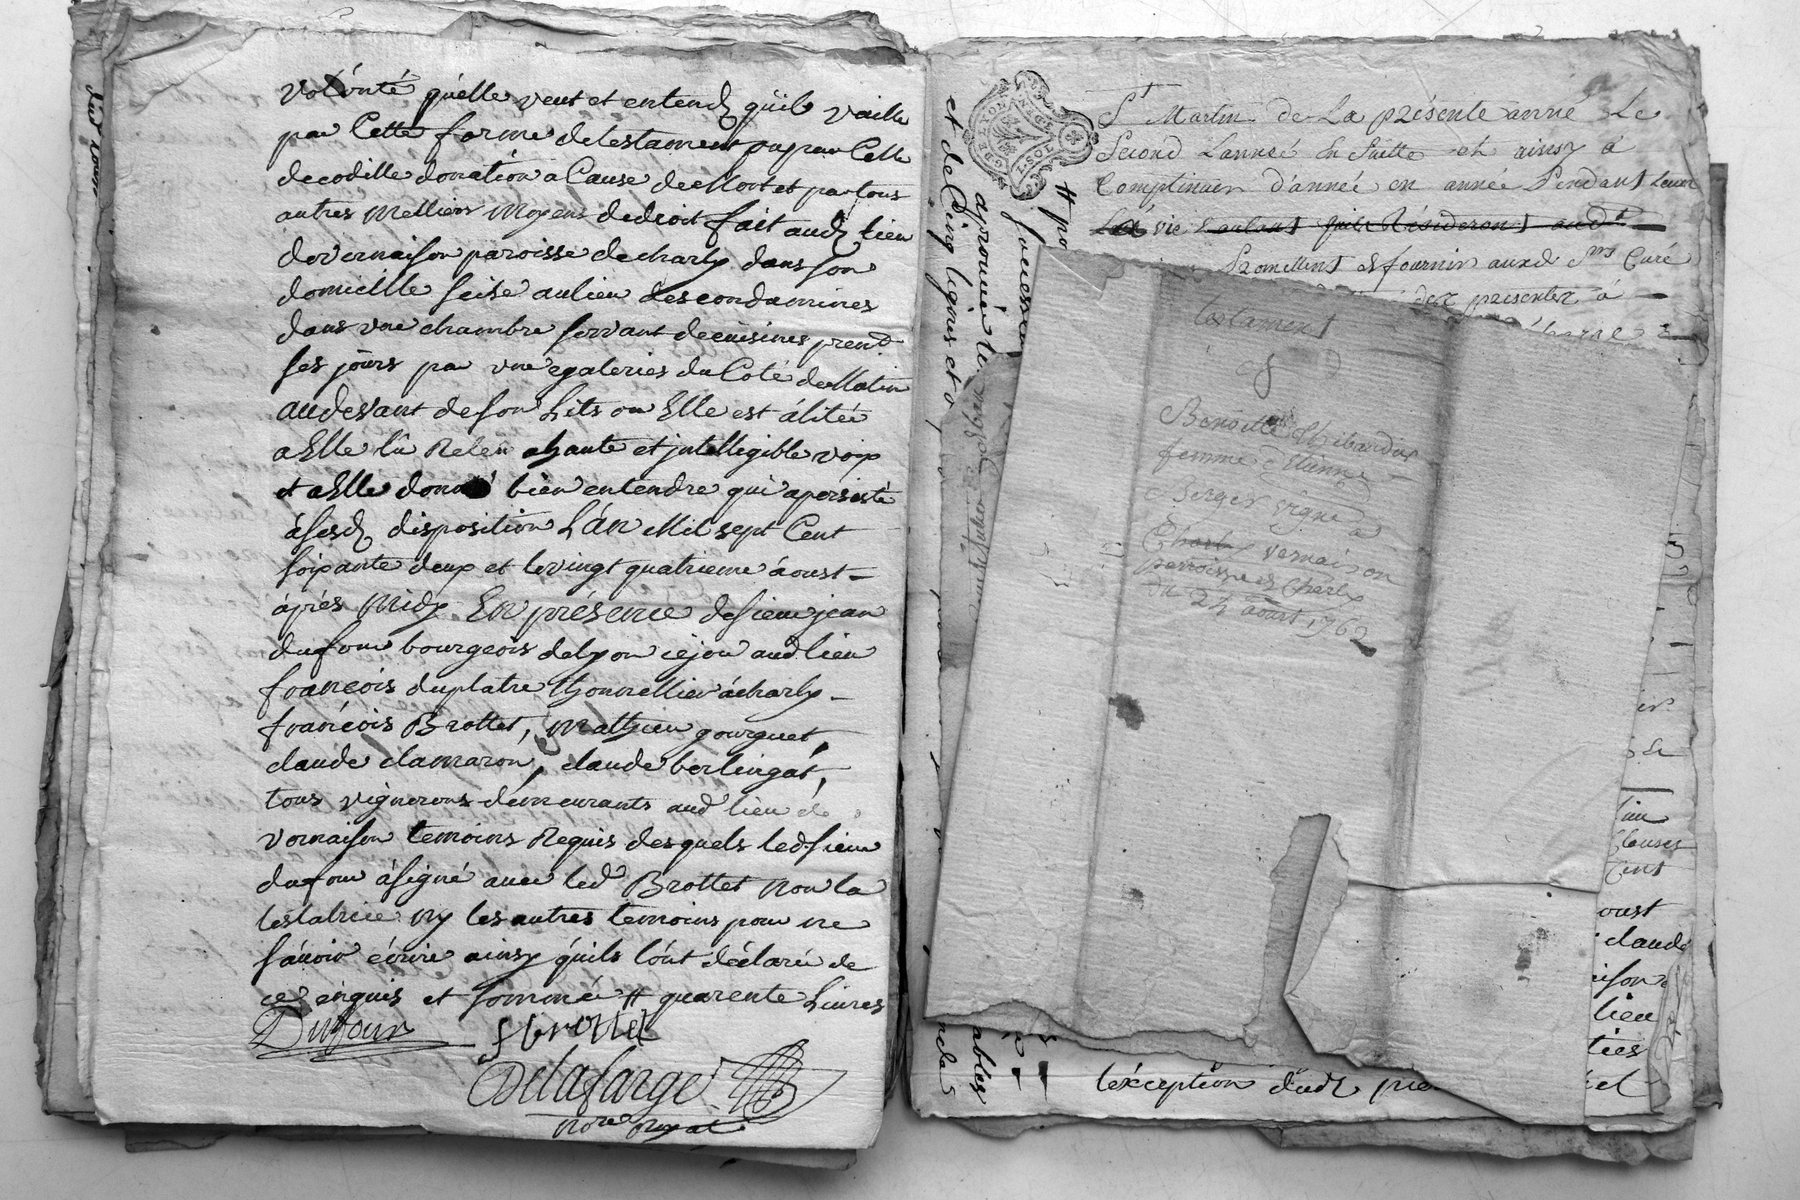 volonté quelle veut et entend quil vaille
par Cette forme de testament ou par Celle
de codille donation a Cause de Mort et par tous
autres Mellieurs Moyens de droit fait aud lieu
de vernaison paroisse de charly dans son
domicille scise au lieu des condamines
dans vne chambre servant de cuisines prend
ses jours par vne galeries du Coté de Matin
audevant de son Lits ou Elle est alitée
a Elle lû Releu a haute et jntelligible voix
et a Elle donné bien entendre qui a persisté
à sesd disposition L'an Mil sept Cent
soixante deux et le vingt quatrieme aoust
après Midy En présence de sieur jean
dufour bourgeois de lyon cejour aud lieu
francois duplatre thonnellier à charly
francois Brottet, Mathieu gourguet,
claude clamaron, claude berlingat,
tous vignerons démeurants aud lieu de
vernaison temoins Requis desquels led sieur
dufour à signé avec led Brottet non la
testatrice ny les autres temoins pour ne
sâvoir écrire ainsy quils l'ont déclaré de
ce enquis et sommé # quarente Livres
Dufour f brottet
Delafarge
no.re royal
et de Cinq lignes et
aprouvée le
# po
GDE LYON
2. SOLS
St Martin de La présente anné Le
Second L'année En Suitte et ainsy à
Comptinuer d'année en année Pendant Leur
vie
Promettent de fournir auxd Srs Curé
presenter à
testament
de
Benoitte thibaudier
femme d'Etienne
Berger vigne à
Charly vernaison
parroisse de Charly
du 24 aoust 1762
oust
claude
lieu
ties
ables
l'exception dud